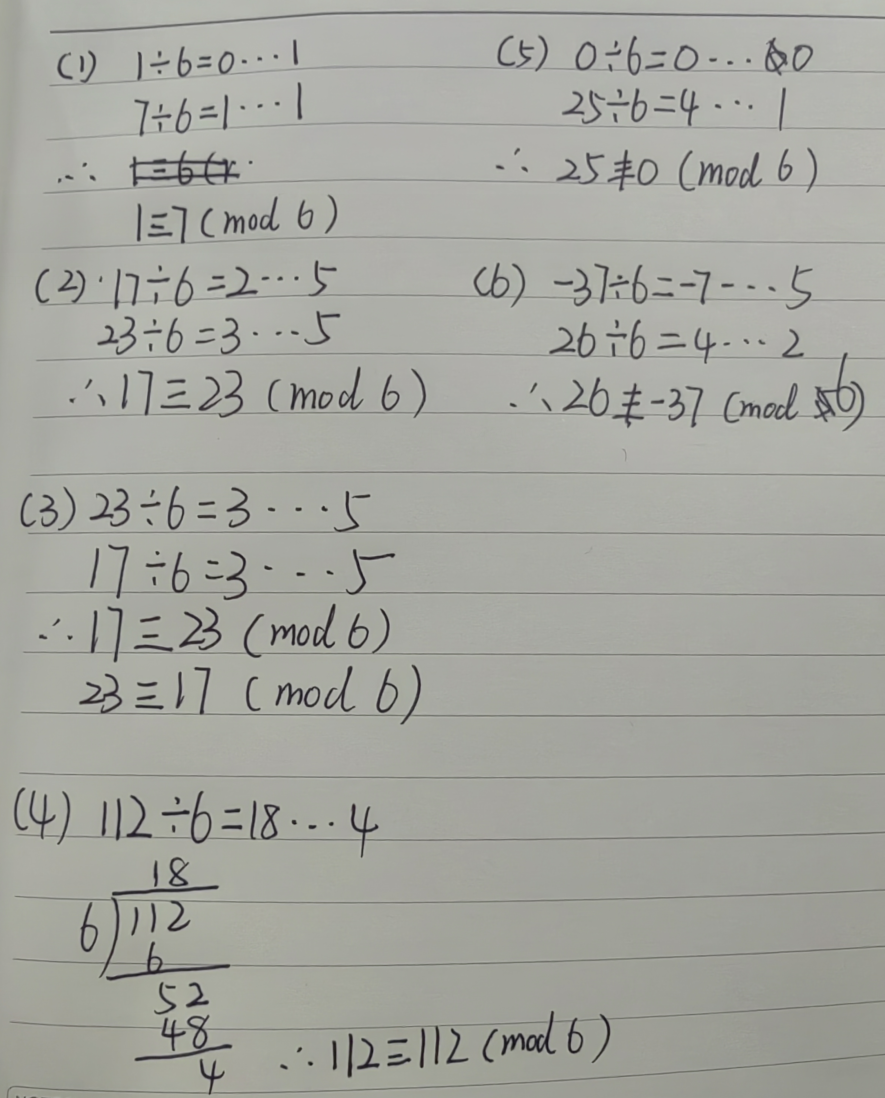 (1) 1÷6=0···1
7÷6=1···1
∴ 1≡6(
1≡7(mod 6)
(2) 17÷6=2···5
23÷6=3···5
∴17≡23 (mod 6)
(3) 23÷6=3···5
17÷6=3···5
∴17≡23 (mod 6)
23≡17 (mod 6)
(4) 112÷6=18···4
18
6)112
6
52
48
4 ∴112≡112 (mod 6)
(5) 0÷6=0···0
25÷6=4···1
∴ 25≢0 (mod 6)
(6) -37÷6=-7···5
26÷6=4···2
∴26≢-37 (mod 6)